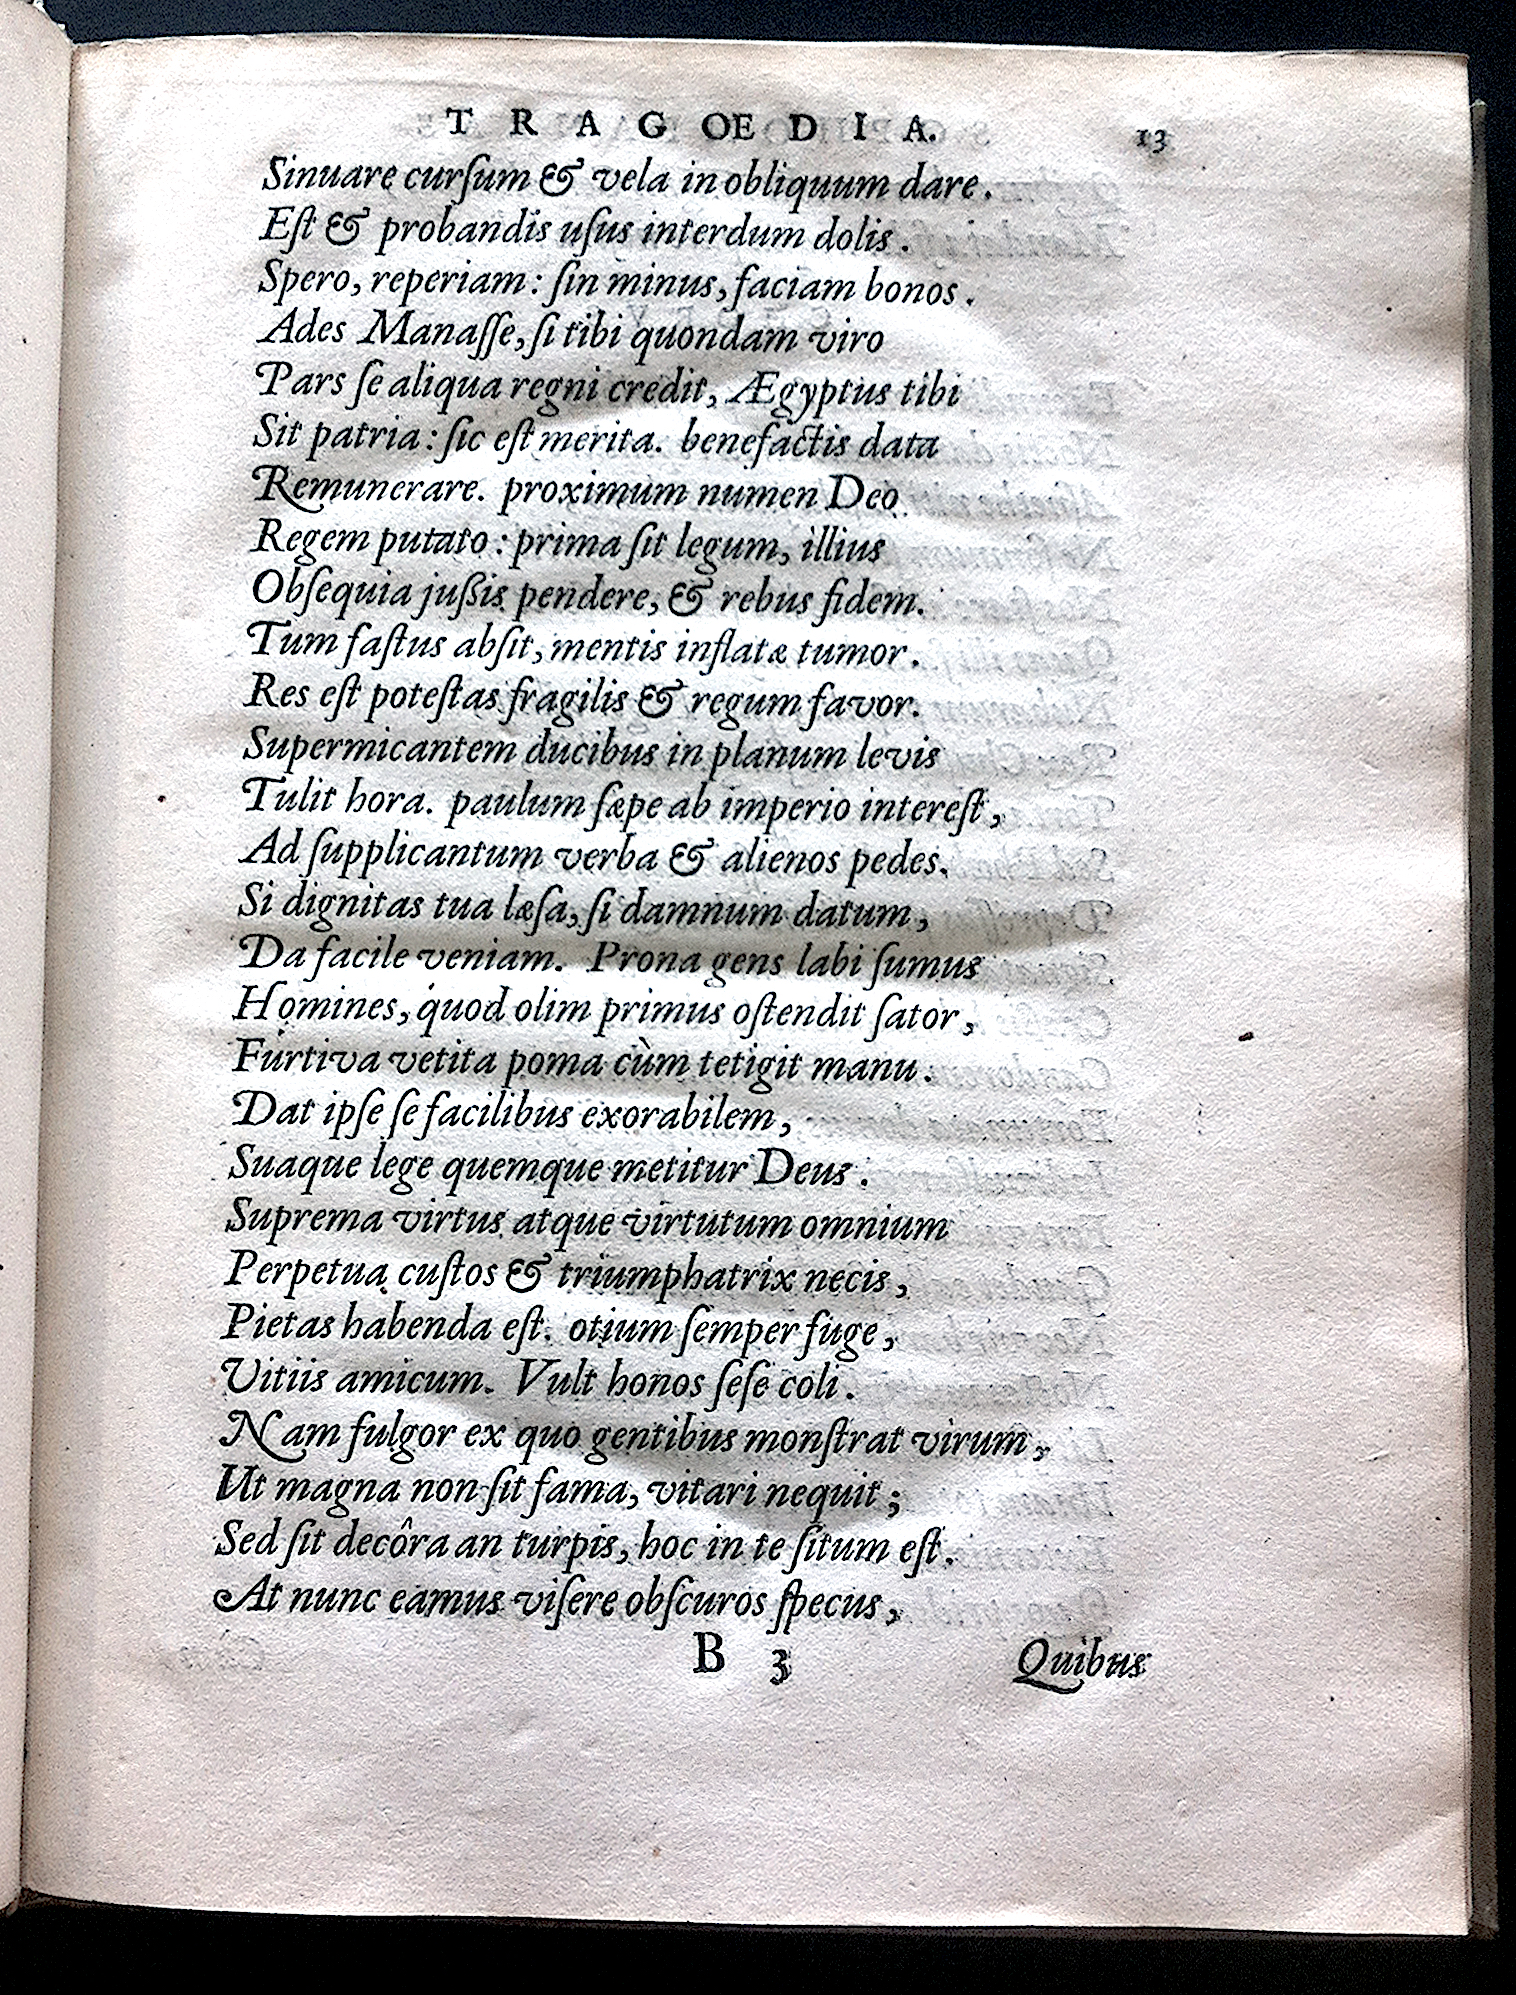 TRAGOEDIA. 13
Sinuare curſum & vela in obliquum dare.
Eſt & probandis uſus interdum dolis.
Spero, reperiam: ſin minus, faciam bonos.
Ades Manaſſe, ſi tibi quondam viro
Pars ſe aliqua regni credit, Ægyptus tibi
Sit patria: ſic eſt merita. benefactis data
Remunerare. proximum numen Deo
Regem putato: prima ſit legum, illius
Obſequia juſſis pendere, & rebus fidem.
Tum faſtus abſit, mentis inflatæ tumor.
Res eſt poteſtas fragilis & regum favor.
Supermicantem ducibus in planum levis
Tulit hora. paulum ſæpe ab imperio intereſt,
Ad ſupplicantum verba & alienos pedes.
Si dignitas tua læſa, ſi damnum datum,
Da facile veniam. Prona gens labi ſumus
Homines, quod olim primus oſtendit ſator,
Furtiva vetita poma cùm tetigit manu.
Dat ipſe ſe facilibus exorabilem,
Suaque lege quemque metitur Deus.
Suprema virtus atque virtutum omnium
Perpetua cuſtos & triumphatrix necis,
Pietas habenda eſt. otium ſemper fuge,
Vitiis amicum. Vult honos ſeſe coli.
Nam fulgor ex quo gentibus monſtrat virum,
Ut magna non ſit fama, vitari nequit;
Sed ſit decôra an turpis, hoc in te ſitum eſt.
At nunc eamus viſere obſcuros ſpecus,
B 3 Quibus